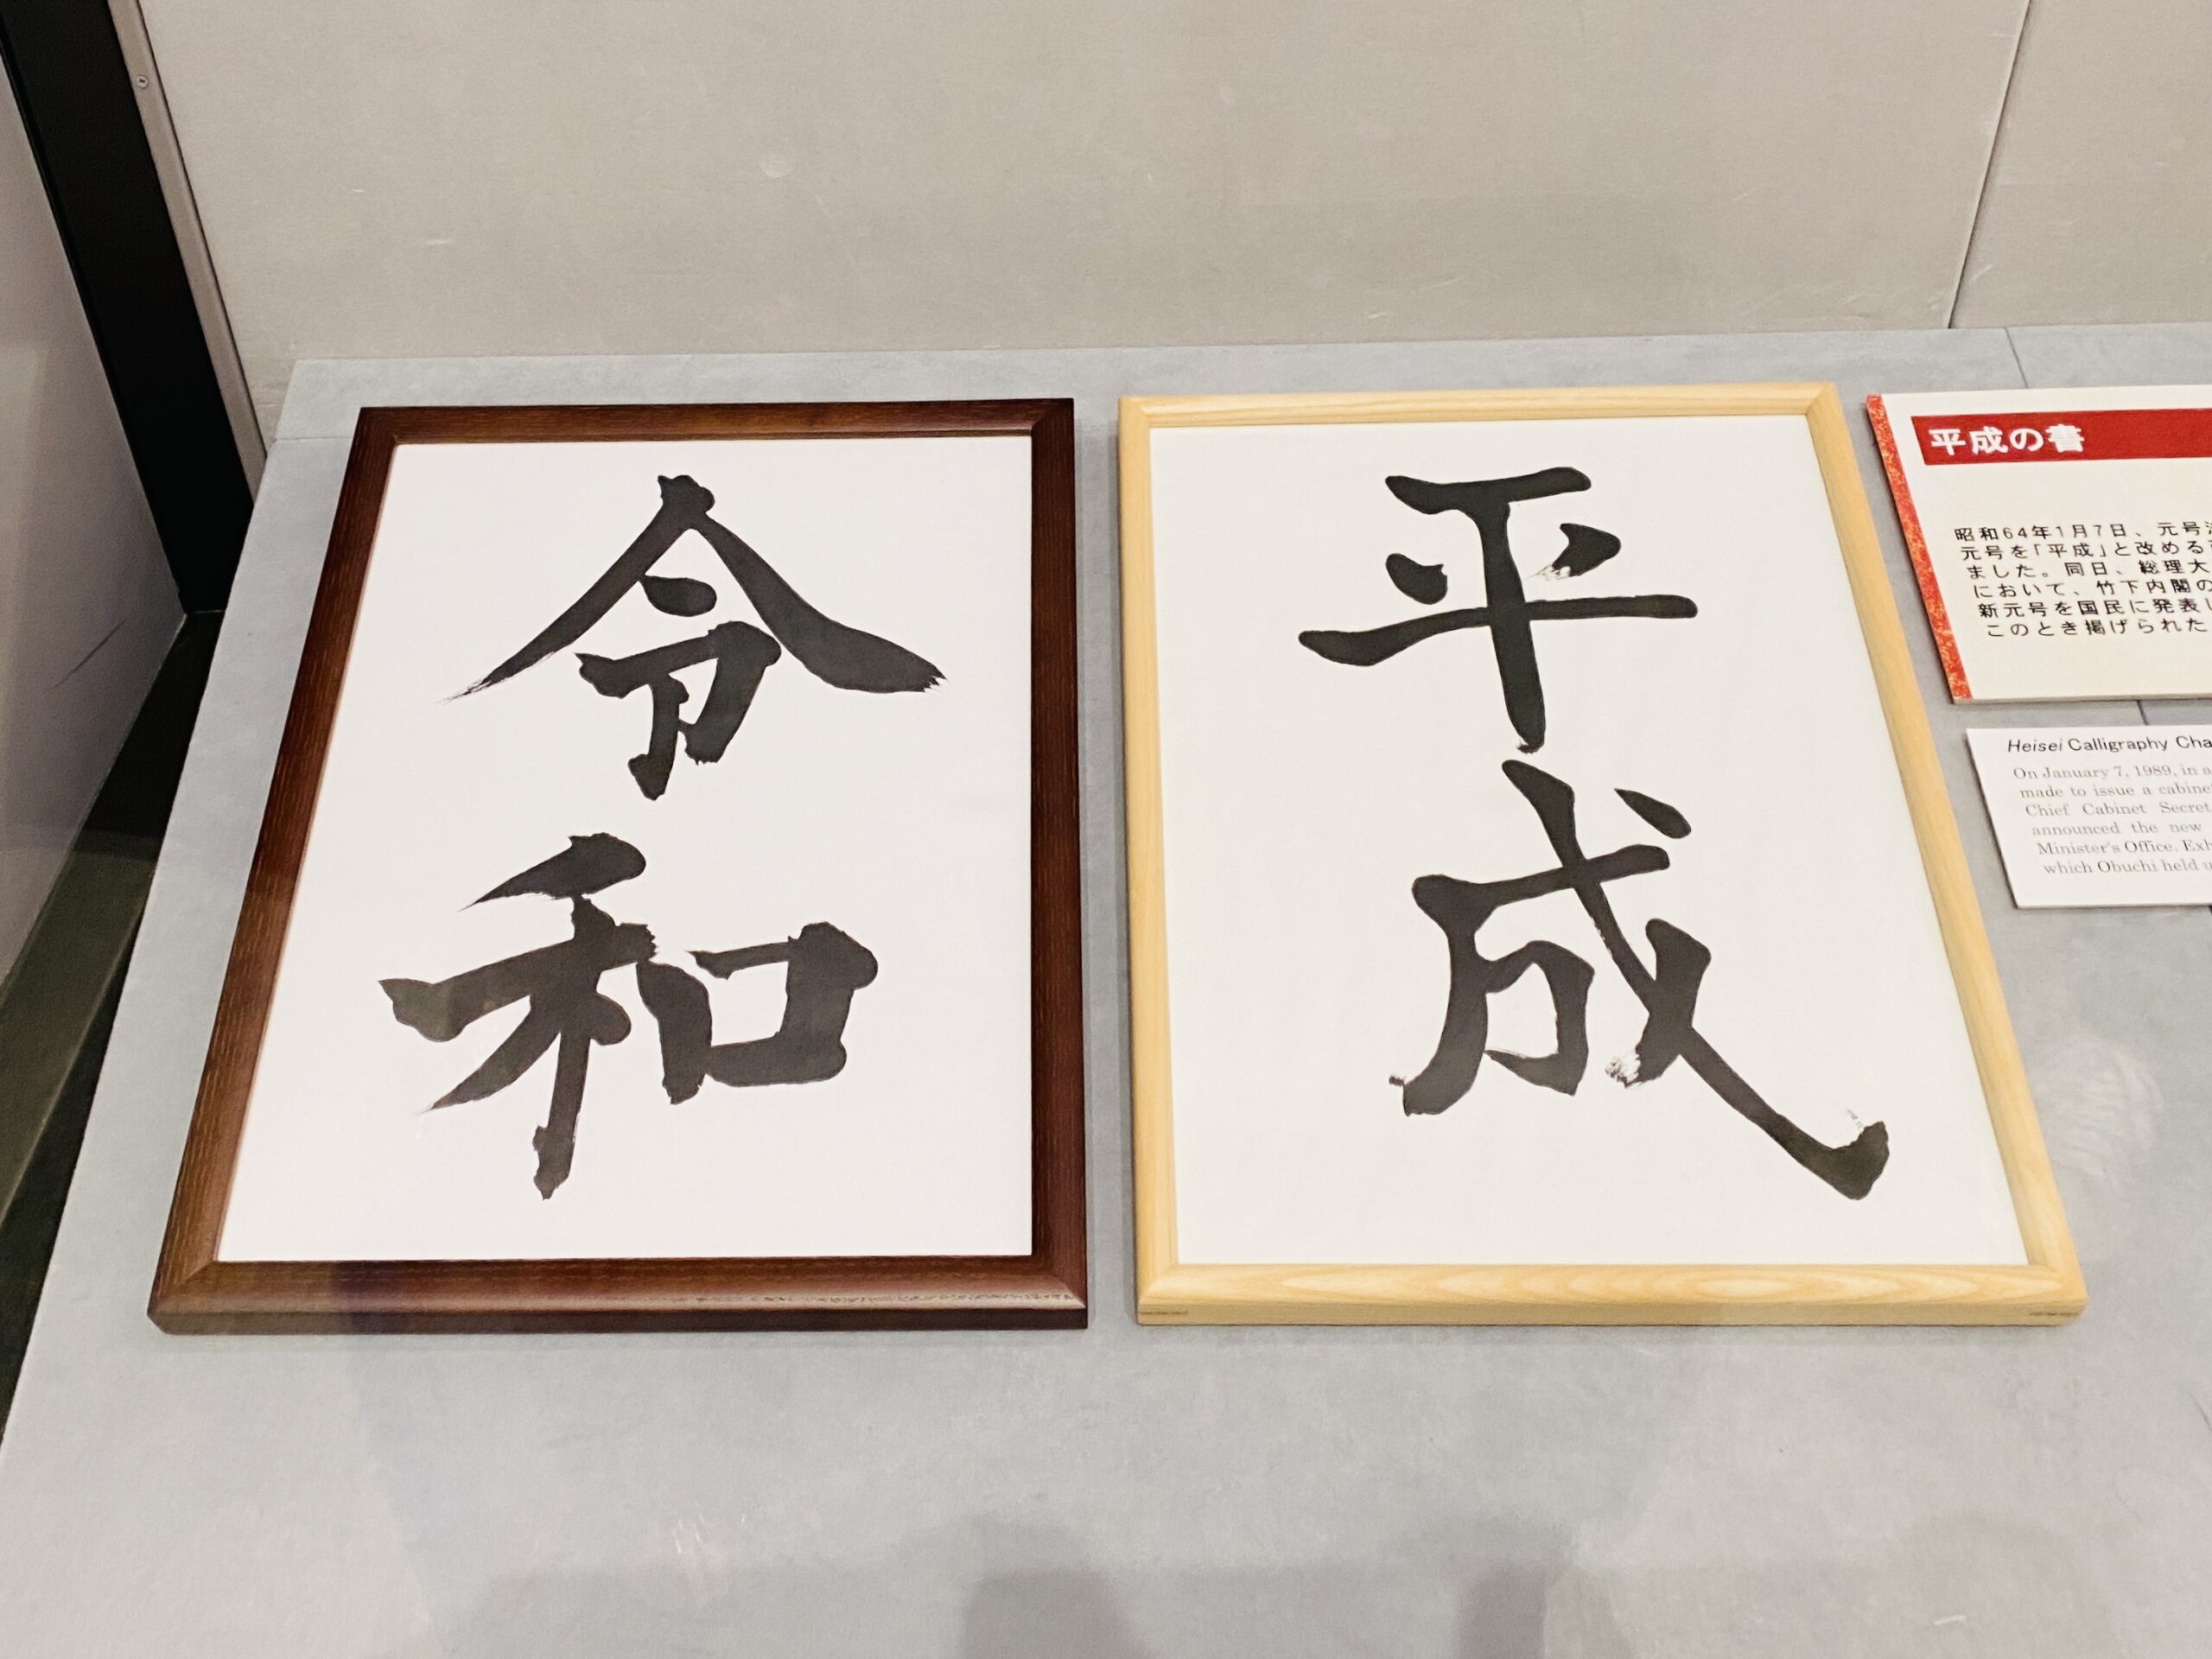 令和
平成
平成の書
昭和64年1月7日、元号
元号を「平成」と改める
ました。同日、総理大
において、竹下内閣の
新元号を国民に発表
このとき掲げられた
Heisei Calligraphy
On January 7, 1989, in a
made to issue a
Chief Cabinet
announced the new
Minister's Office.
which Obuchi held